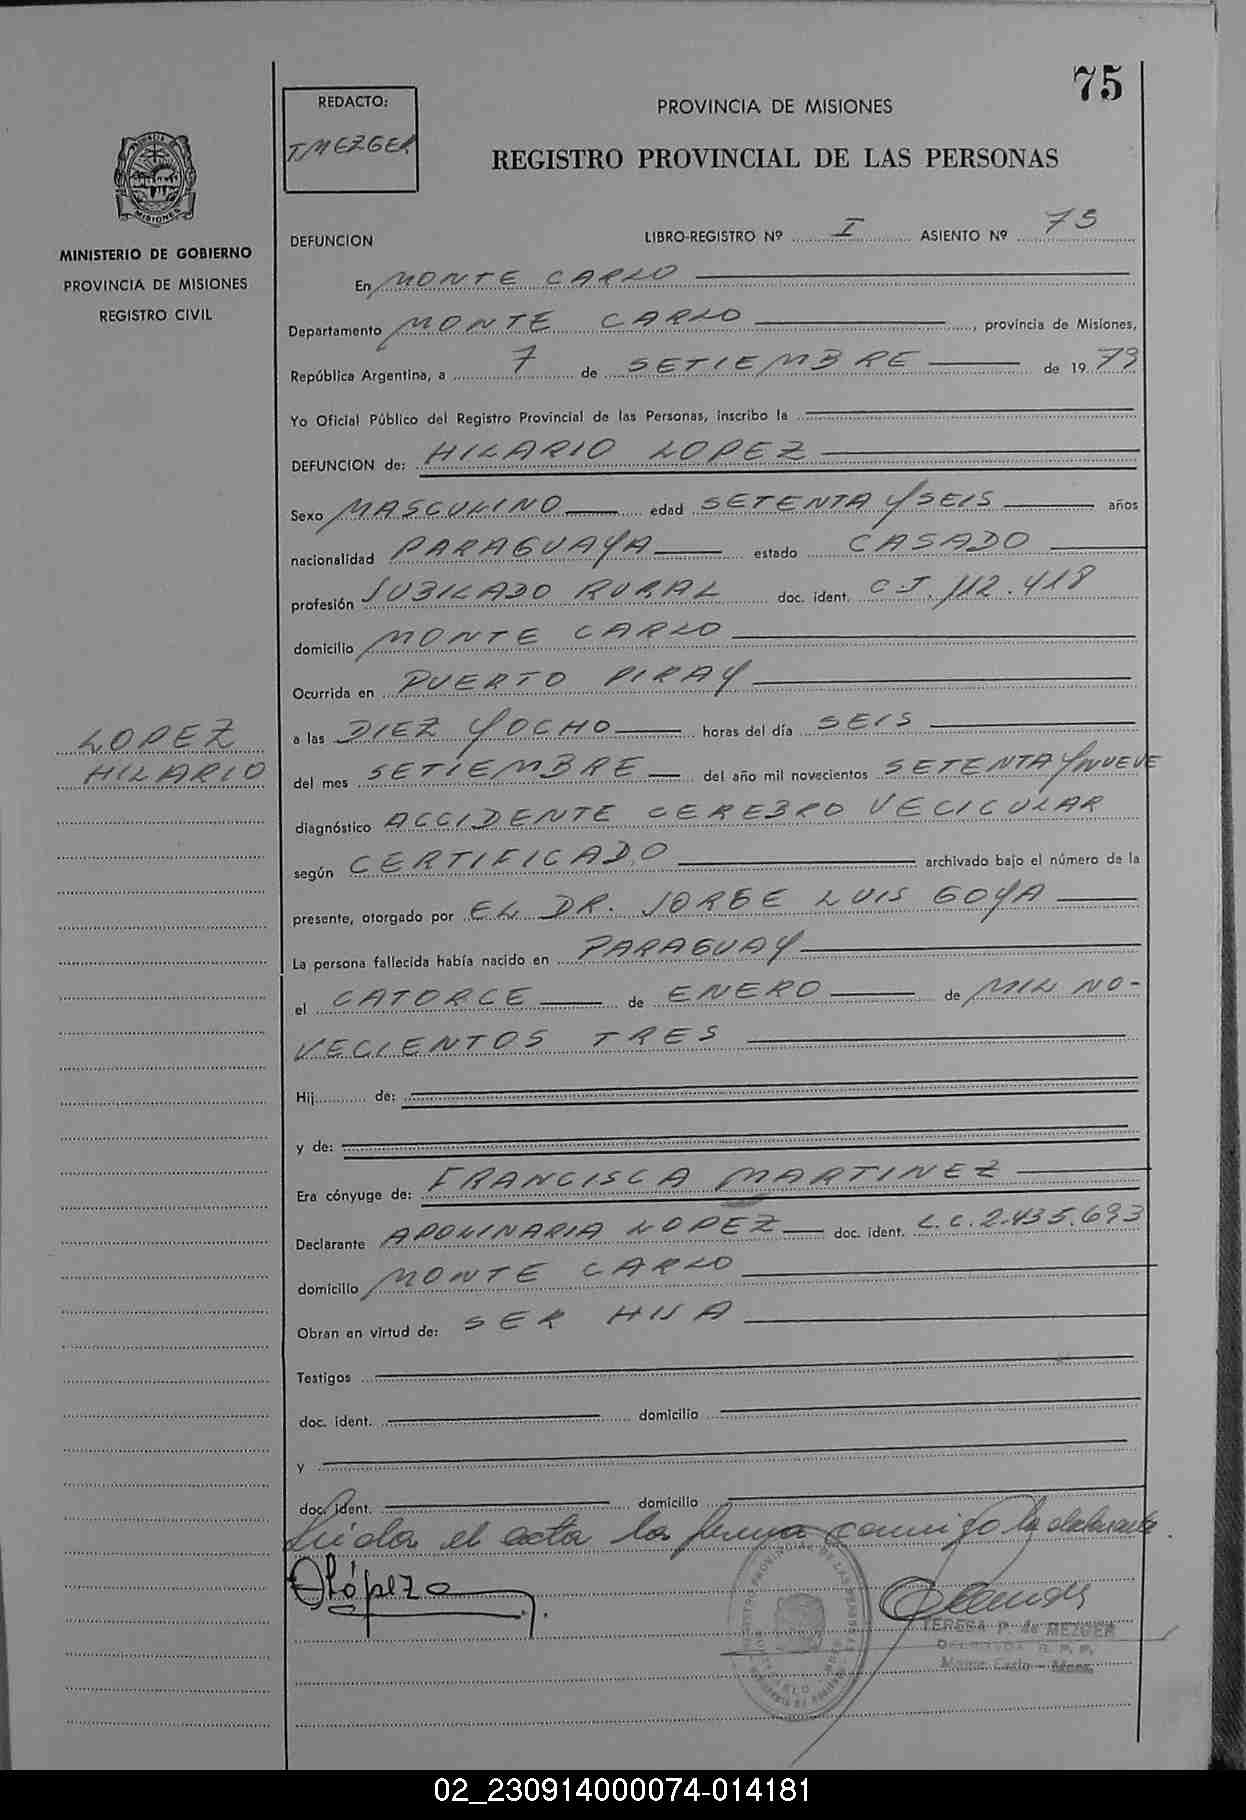 75
REDACTO:
TMEZGER
PROVINCIA DE MISIONES
REGISTRO PROVINCIAL DE LAS PERSONAS
MISIONES
MINISTERIO DE GOBIERNO
PROVINCIA DE MISIONES
REGISTRO CIVIL
DEFUNCION LIBRO-REGISTRO Nº I ASIENTO Nº 75
En MONTE CARLO
Departamento MONTE CARLO, provincia de Misiones,
República Argentina, a 7 de SETIEMBRE de 1979
Yo Oficial Público del Registro Provincial de las Personas, inscribo la
DEFUNCION de: HILARIO LOPEZ
Sexo MASCULINO edad SETENTA Y SEIS años
nacionalidad PARAGUAYA estado CASADO
profesión JUBILADO RURAL doc. ident. C.I. 112.418
domicilio MONTE CARLO
Ocurrida en PUERTO PIRAY
a las DIEZ Y OCHO horas del día SEIS
LOPEZ
HILARIO
del mes SETIEMBRE del año mil novecientos SETENTA Y NUEVE
diagnóstico ACCIDENTE CEREBRO VECICULAR
según CERTIFICADO archivado bajo el número de la
presente, otorgado por EL DR. JORGE LUIS GOYA
La persona fallecida había nacido en PARAGUAY
el CATORCE de ENERO de MIL NO-
VECIENTOS TRES
Hij de:
y de:
Era cónyuge de: FRANCISCA MARTINEZ
Declarante APOLINARIA LOPEZ doc. ident. L.C. 2.435.693
domicilio MONTE CARLO
Obran en virtud de: SER HIJA
Testigos
doc. ident. domicilio
y
doc. ident. domicilio
Leida el acta la firma conmigo la declarante.
López
TERESA P. de MEZGER
DELEGADA R. P. P.
Monte Carlo - Mnes.
02_230914000074-014181